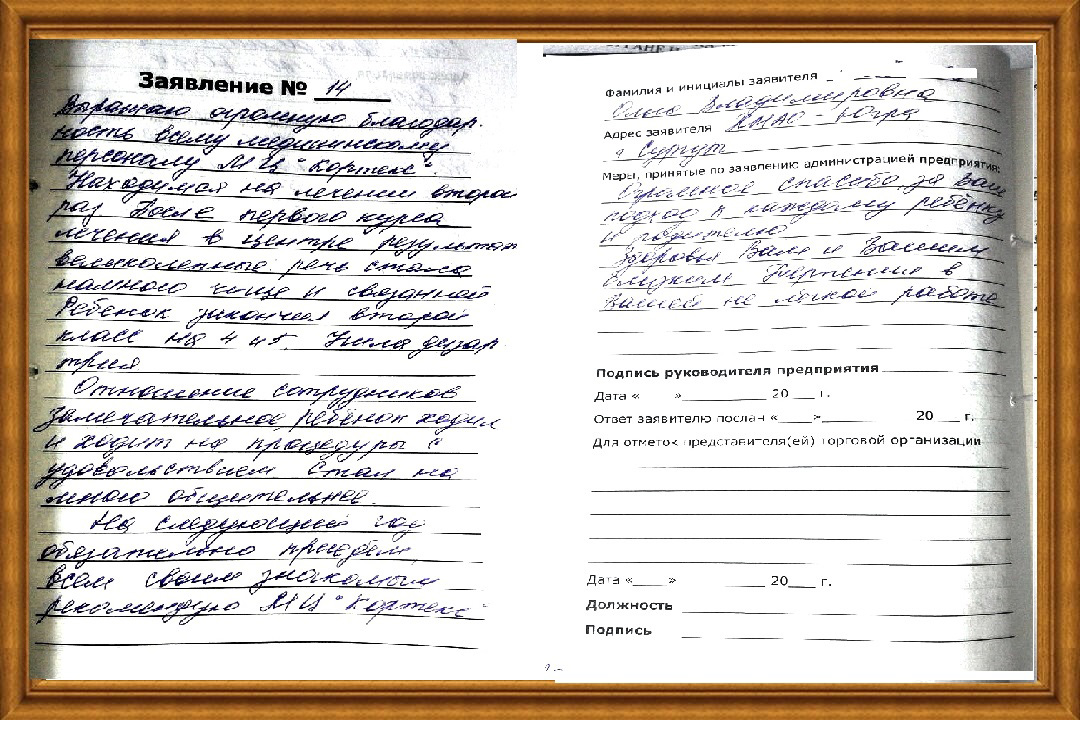 Заявление № 14
Выражаю огромную благодар-
ность всему медицинскому
персоналу МЦ "Кортекс".
Находимся на лечении второй
раз. После первого курса
лечения в центре результат
великолепные речь стала
намного чище и связанной
Ребенок закончил второй
класс на 4 и 5. Ушла дизар
трия
Отношение сотрудников
замечательное ребенок ходил
и ходит на процедуры с
удовольствием. Стал на
много общительнее.
На следующий год
обязательно приедем,
всем своим знакомым
рекомендую МЦ "Кортекс"
Фамилия и инициалы заявителя
Ольга Владимировна
Адрес заявителя ХМАО - Югра
г Сургут
Меры, принятые по заявлению администрацией предприятия:
Огромное спасибо за ваш
подход к каждому ребёнку
и родителю
Здоровья Вам и Вашим
близким Терпения в
вашей не легкой работе
Подпись руководителя предприятия
Дата « » 20 г.
Ответ заявителю послан « » 20 г.
Для отметок представителя(ей) торговой организации
Дата « » 20 г.
Должность
Подпись